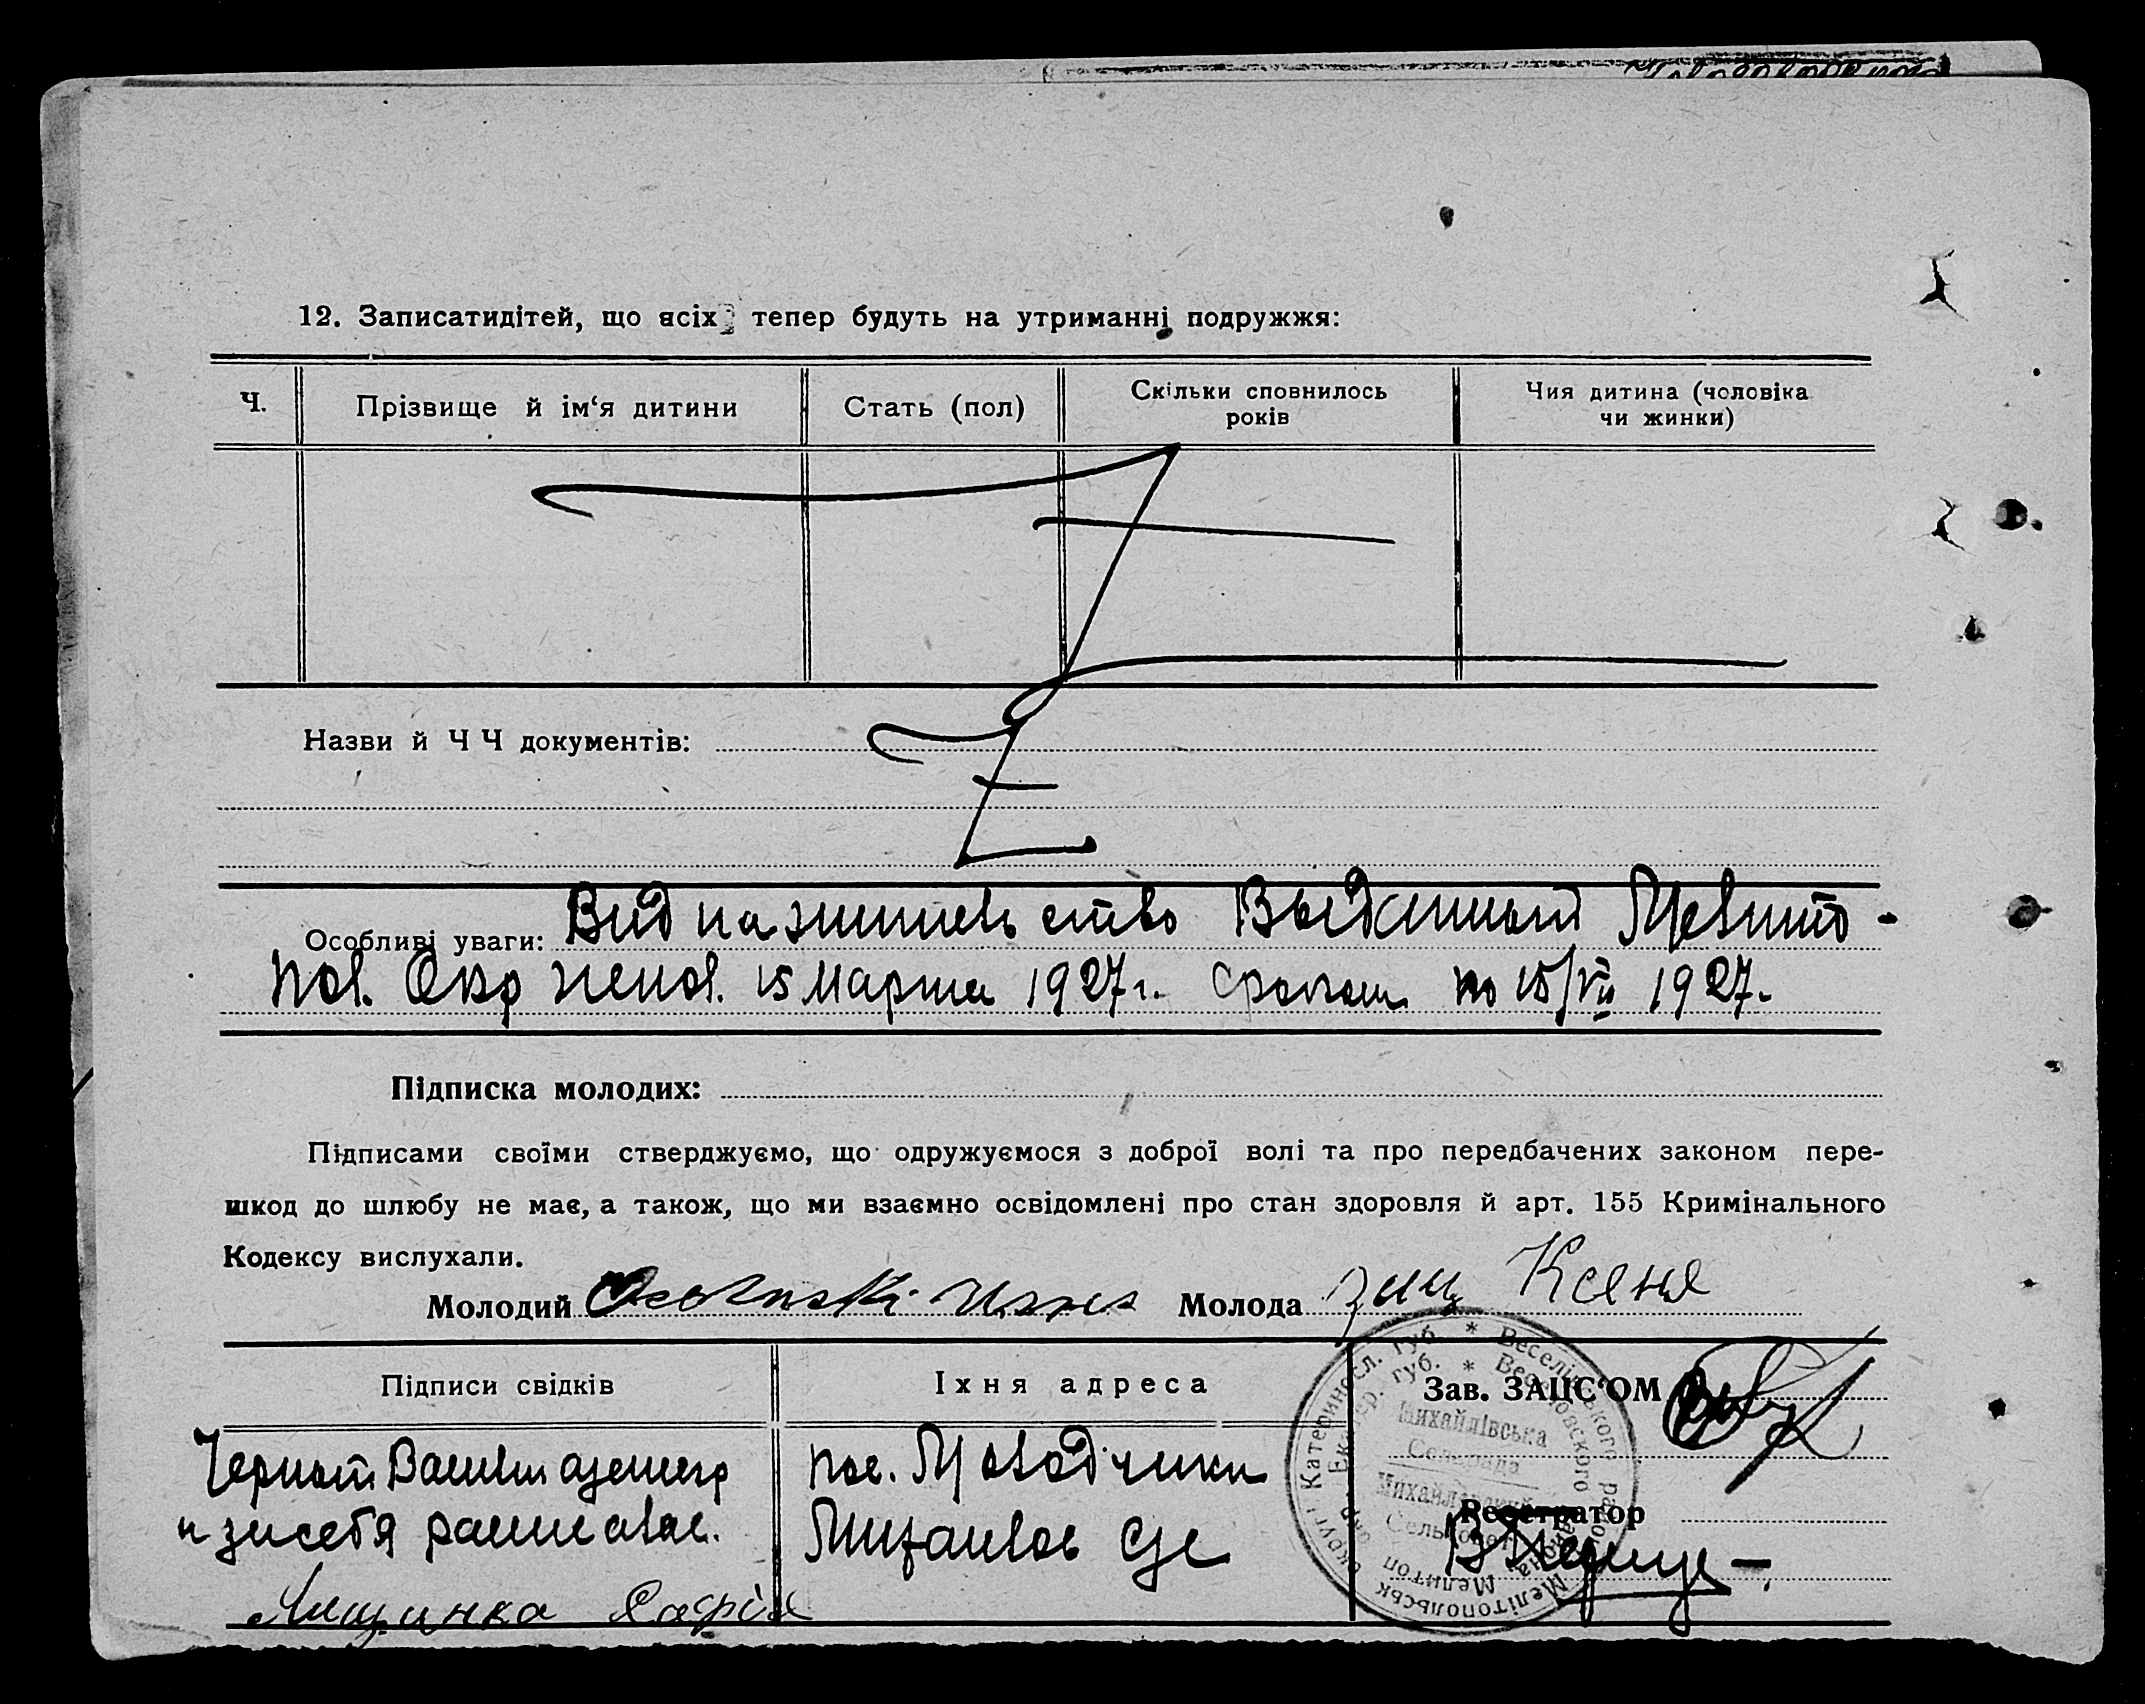 12. Записатидітей, що всіх тепер будуть на утриманні подружжя:
Ч.
Прізвище й ім‘я дитини
Стать (пол)
Скільки сповнилось
років
Чия дитина (чоловіка
чи жинки)
Назви й Ч Ч документів:
Особливі уваги: Вид на жительство Выданный Мелито-
пол. Окр 15 Марта 1927 г. сроком по 15/VII 1927.
Підписка молодих:
Підписами своїми стверджуємо, що одружуємося з доброї волі та про передбачених законом пере-
шкод до шлюбу не має, а також, що ми взаємно освідомлені про стан здоровля й арт. 155 Кримінального
Кодексу вислухали.
Молодий
Молода Ксеня
Підписи свідків
Їхня адреса
Зав. ЗАЦС‘ОМ
Черный
и за себя росписалс.
Лящинка Софія
пос.
Михайлов
Реєстратор
Катериносл. губ. * Веселівського району Мелітопольськ округи
Михайлівська
Сельрада
Михайловский
Сельсовет